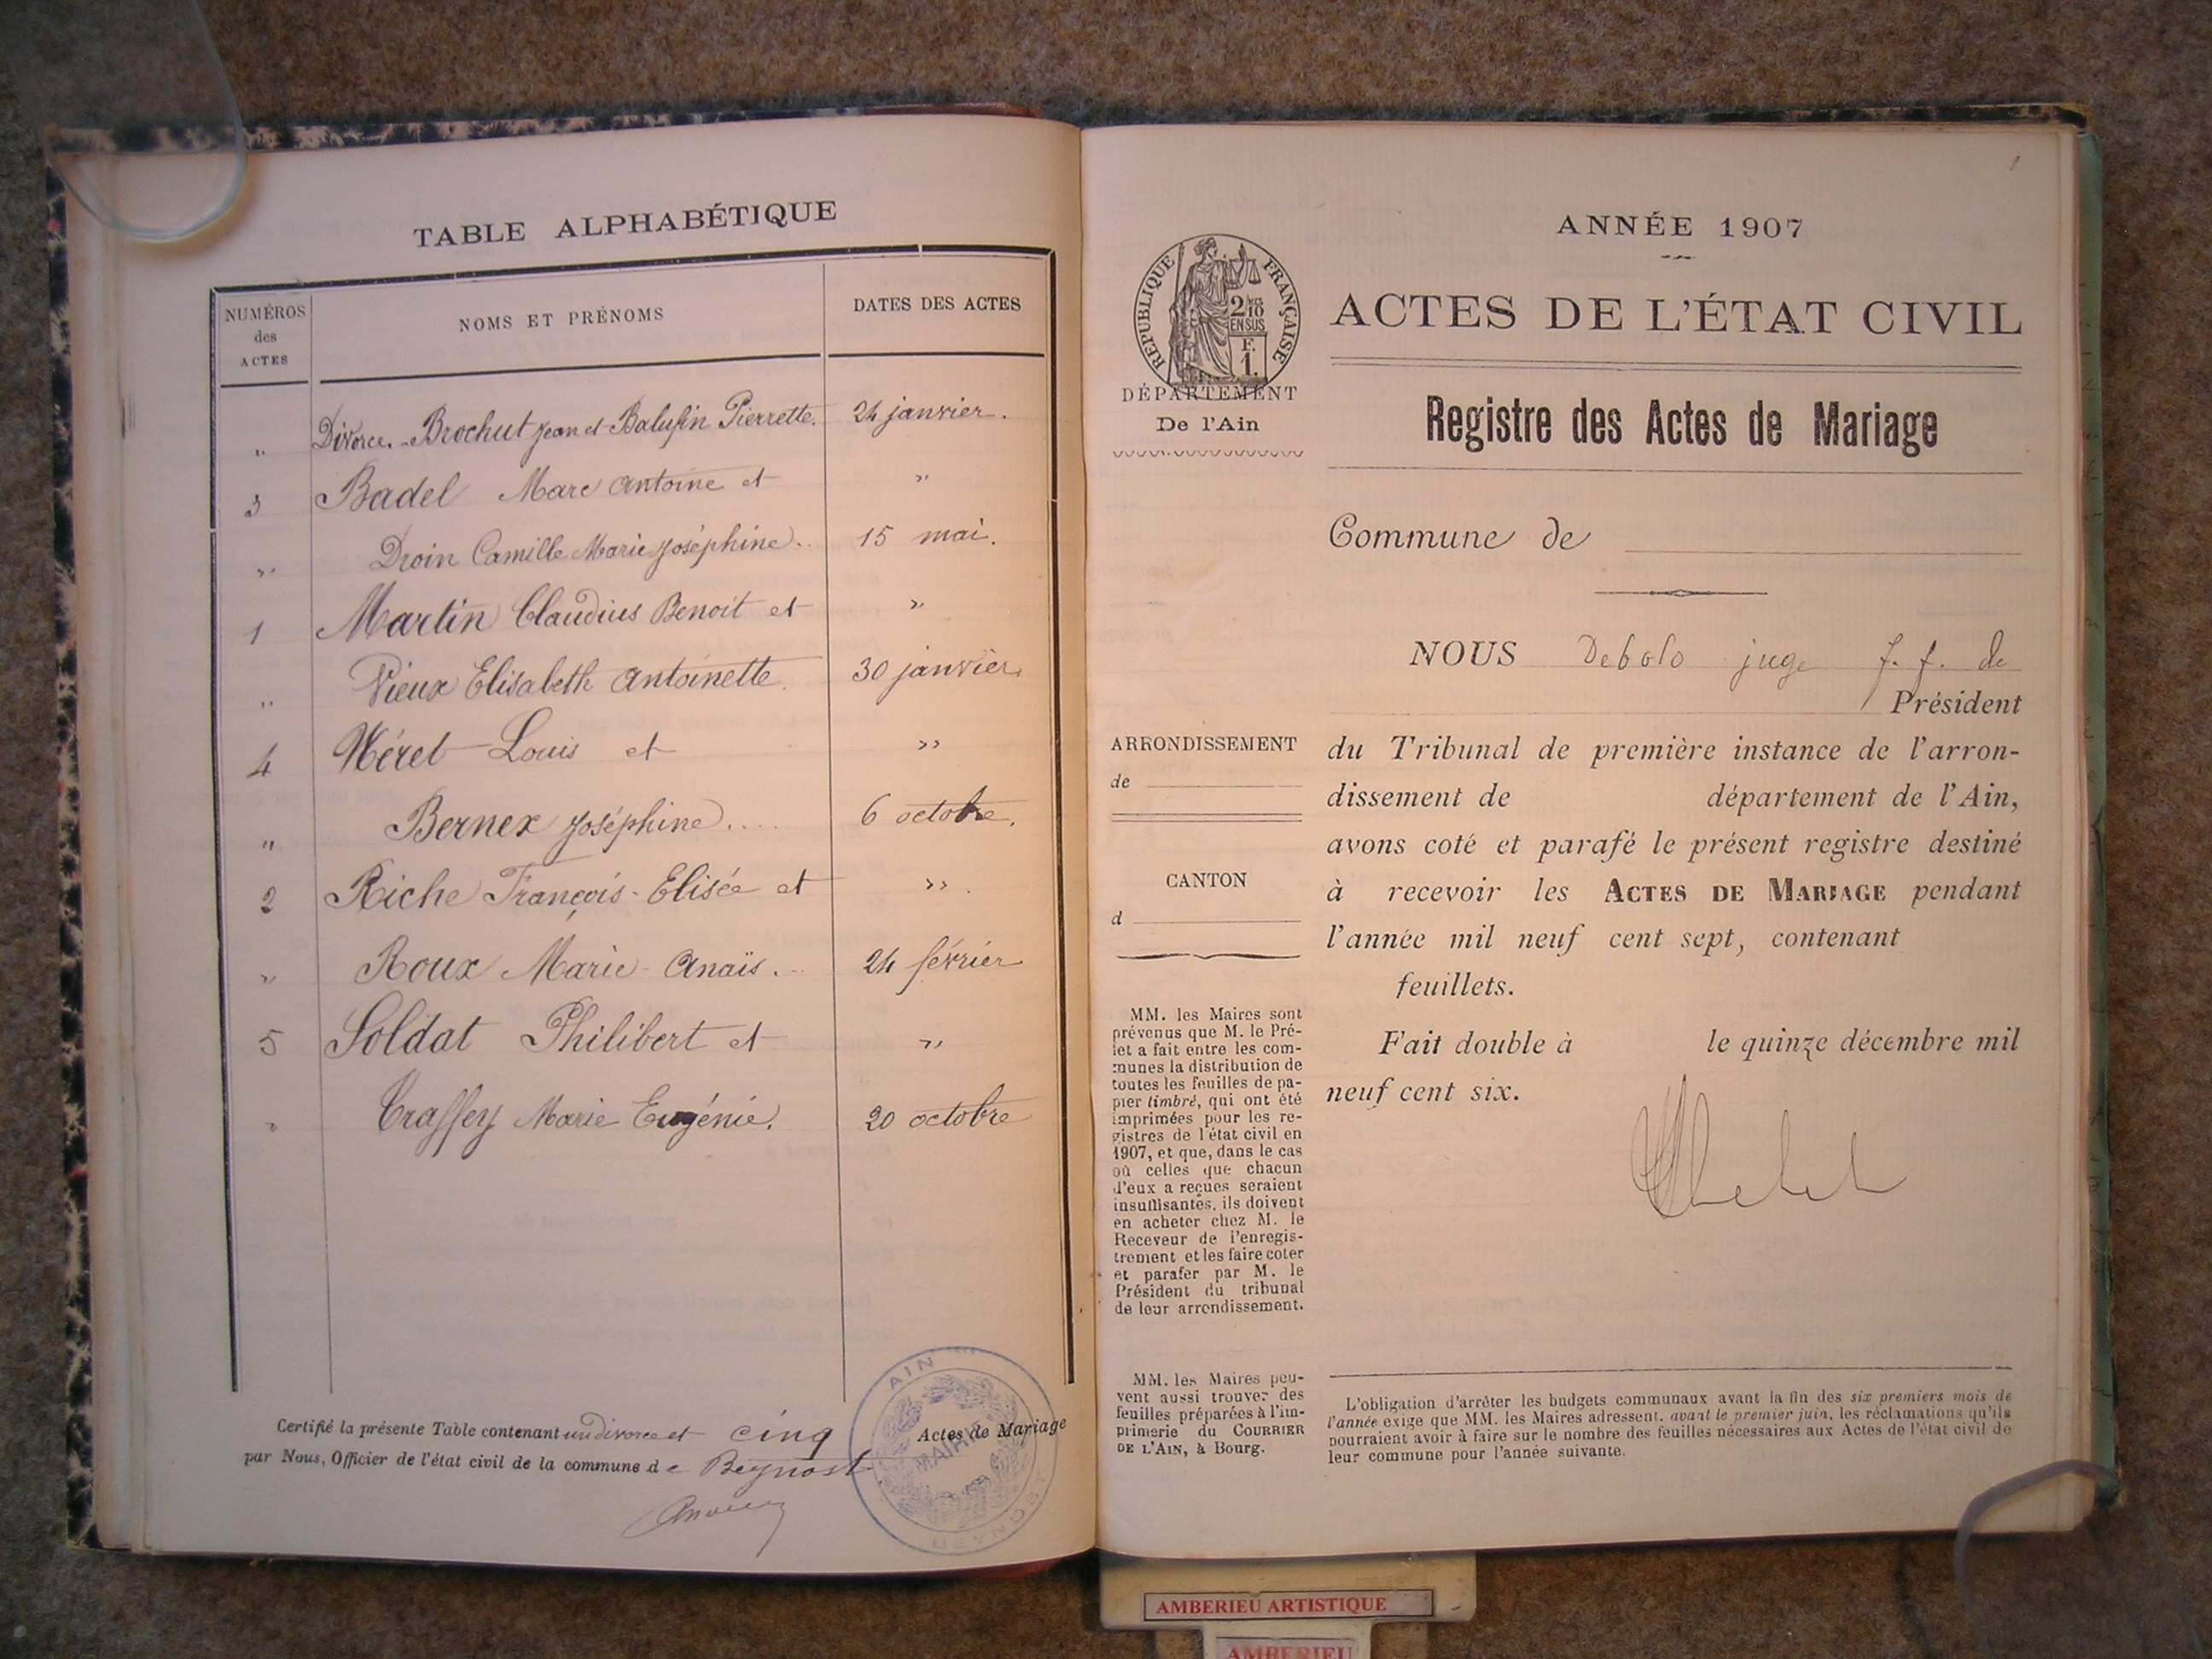 TABLE ALPHABÉTIQUE
NUMÉROS
des
ACTES
NOMS ET PRÉNOMS
DATES DES ACTES
" Divorce. Brochut Jean et Balufin Pierrette. 24 janvier.
3 Badel Marc Antoine et "
" Droin Camille Marie Joséphine. 15 mai.
1 Martin Claudius Benoit et "
" Vieux Elisabeth Antoinette. 30 janvier.
4 Méret Louis et "
" Bernex Joséphine.... 6 octobre.
2 Riche François-Elisée et "
" Roux Marie-Anaïs. 24 février
5 Soldat Philibert et "
" Traffey Marie Eugénie. 20 octobre
Certifié la présente Table contenant un divorce et cinq Actes de Mariage
par Nous, Officier de l'état civil de la commune de Beynost
AIN
MAIRIE
BEYNOST
1
ANNÉE 1907
RÉPUBLIQUE FRANÇAISE
2/10
EN SUS
F.
1.
DÉPARTEMENT
De l'Ain
ACTES DE L'ÉTAT CIVIL
Registre des Actes de Mariage
Commune de
NOUS Debolo juge f. f. de
Président
du Tribunal de première instance de l'arron-
dissement de département de l'Ain,
avons coté et parafé le présent registre destiné
à recevoir les ACTES DE MARIAGE pendant
l'année mil neuf cent sept, contenant
feuillets.
Fait double à le quinze décembre mil
neuf cent six.
ARRONDISSEMENT
de
CANTON
d
MM. les Maires sont
prévenus que M. le Pré-
fet a fait entre les com-
munes la distribution de
toutes les feuilles de pa-
pier timbré, qui ont été
imprimées pour les re-
gistres de l'état civil en
1907, et que, dans le cas
où celles que chacun
d'eux a reçues seraient
insuffisantes, ils doivent
en acheter chez M. le
Receveur de l'enregis-
trement et les faire coter
et parafer par M. le
Président du tribunal
de leur arrondissement.
MM. les Maires peu-
vent aussi trouver des
feuilles préparées à l'im-
primerie du COURRIER
DE L'AIN, à Bourg.
L'obligation d'arrêter les budgets communaux avant la fin des six premiers mois de
l'année exige que MM. les Maires adressent, avant le premier juin, les réclamations qu'ils
pourraient avoir à faire sur le nombre des feuilles nécessaires aux Actes de l'état civil de
leur commune pour l'année suivante.
AMBERIEU ARTISTIQUE
AMBERIEU